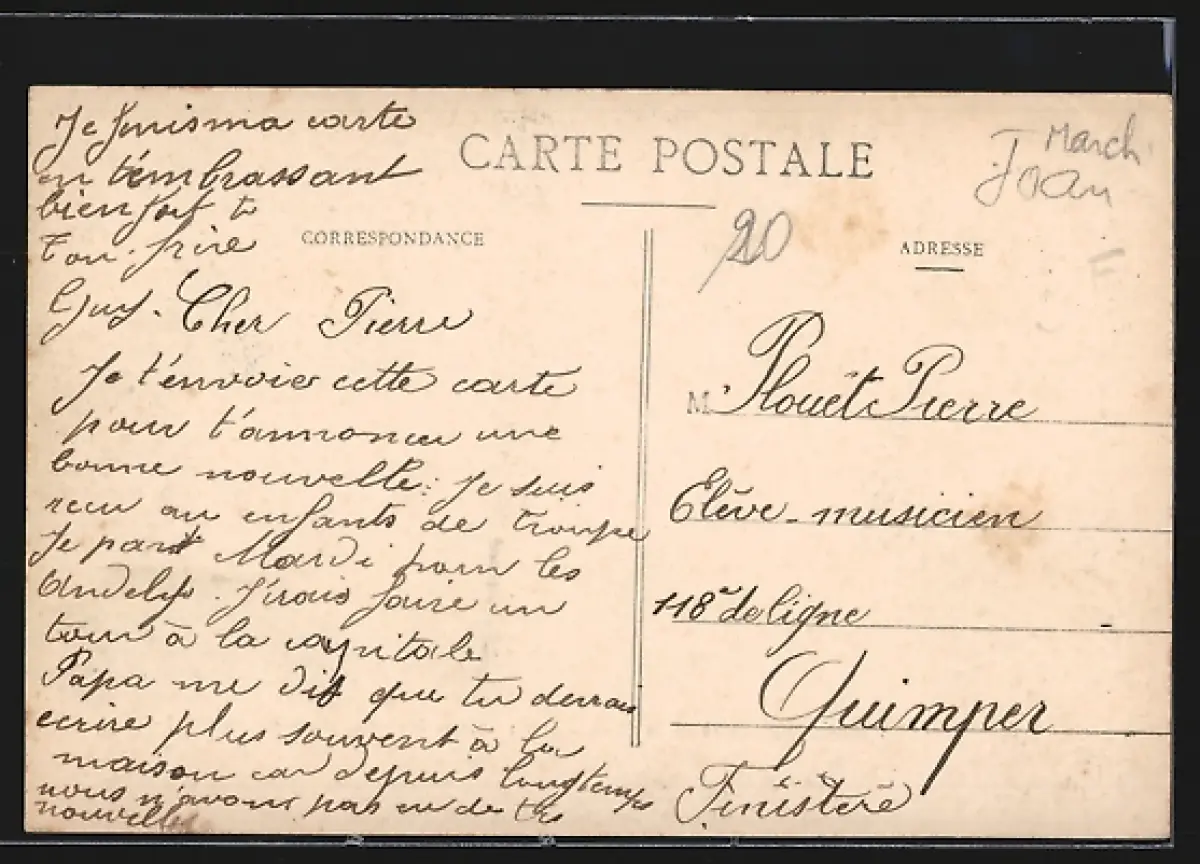 CARTE POSTALE
March
Joan
20
CORRESPONDANCE
ADRESSE
F
Cher Pierre
Je t'envoie cette carte
pour t'annoncer une
bonne nouvelle: je suis
recu au enfants de troupe
Je part Mardi pour les
Andelys. J'irais faire un
tour à la capitale
Papa me dit que tu devrais
ecrire plus souvent à la
maison car depuis longtemps
nous n'avons pas eu de tes
nouvelles
Je finis ma carte
en t'embrassant
bien fort
Ton frère
Guy.
M. Plouët Pierre
Elève-musicien
118e de ligne
Quimper
Finistère